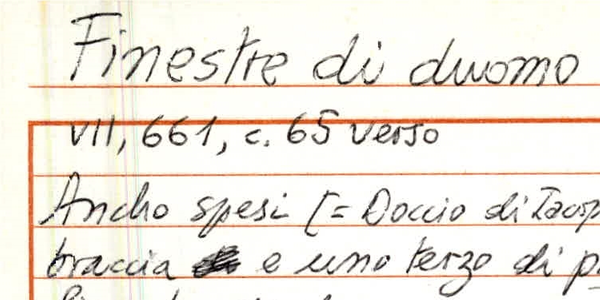 Finestre di duomo
VII, 661, c. 65 verso
Ancho spesi [= Doccio di Iacop
braccia e uno terzo di p